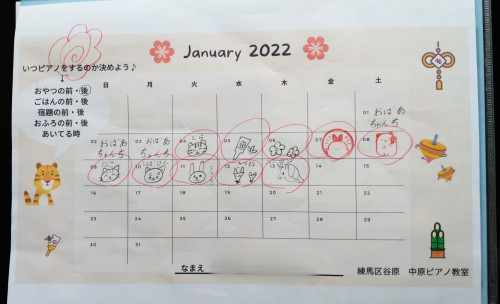 January 2022
いつピアノをするのか決めよう♪
おやつの前・後
ごはんの前・後
宿題の前・後
おふろの前・後
あいてる時
日 月 火 水 木 金 土
01 おばあちゃんち
02 おばあちゃんち 03 おばあちゃんち 04 とら 05 06 07 08
09 10 11 12 13 14 15
16 17 18 19 20 21 22
23 24 25 26 27 28 29
30 31
なまえ
練馬区谷原 中原ピアノ教室